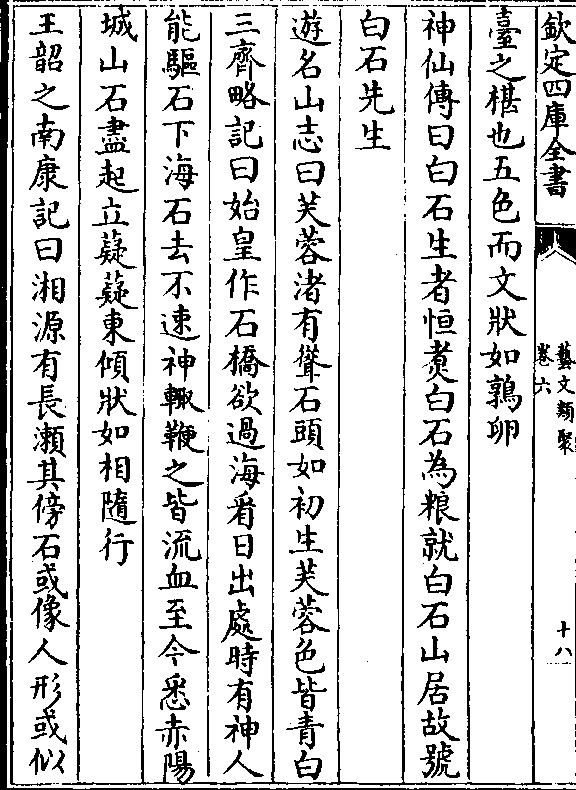 欽定四庫全書
藝文類聚
卷六
十八
臺之椹也五色而文狀如鶉卵
神仙傳曰白石生者恒煑白石為粮就白石山居故號
白石先生
遊名山志曰芙蓉渚有聳石頭如初生芙蓉色皆青白
三齊略記曰始皇作石橋欲過海看日出處時有神人
能驅石下海石去不速神輙鞭之皆流血至今悉赤陽
城山石盡起立薿薿東傾狀如相隨行
王韶之南康記曰湘源有長瀨其傍石或像人形或似